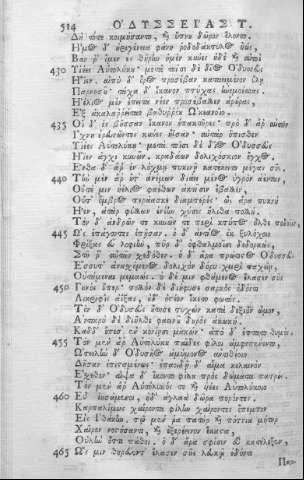 514 ΟΔΥΣΣΕΙΑΣ Τ.
Δὴ τότε κοιμήσαντο, καὶ ὕπνου δῶρον ἕλοντο.
Ἦμος δ' ἠριγένεια φάνη ῥοδοδάκτυλος ἠώς,
Βάν ῥ' ἴμεν ἐς θήρην ἠμὲν κύνες ἠδὲ καὶ αὐτοὶ
430 Υἱέες Αὐτολύκου· μετὰ τοῖσι δὲ δῖος Ὀδυσσεὺς
Ἤιεν. αἰπὺ δ' ὄρος προσέβαν καταειμένον ὕλῃ
Παρνησοῦ· τάχα δ' ἵκανον πτύχας ἠνεμοέσσας.
Ἠέλιος μὲν ἔπειτα νέον προσέβαλλεν ἀρούρας,
Ἐξ ἀκαλαρρείταο βαθυρρόου Ὠκεανοῖο·
435 Οἱ δ' ἐς βῆσσαν ἵκανον ἐπακτῆρες· πρὸ δ' ἄρ' αὐτῶν
Ἴχνι' ἐρευνῶντες κύνες ἤισαν· αὐτὰρ ὄπισθεν
Υἱέες Αὐτολύκου· μετὰ τοῖσι δὲ δῖος Ὀδυσσεὺς
Ἤιεν ἄγχι κυνῶν, κραδάων δολιχόσκιον ἔγχος.
Ἔνθα δ' ἄρ' ἐν λόχμῃ πυκινῇ κατέκειτο μέγας σῦς.
440 Τὴν μὲν ἄρ' οὔτ' ἀνέμων διάει μένος ὑγρὸν ἀέντων,
Οὔτε μιν ἠέλιος φαέθων ἀκτῖσιν ἔβαλλεν,
Οὔτ' ὄμβρος περάασκε διαμπερές· ὣς ἄρα πυκνὴ
Ἦεν, ἀτὰρ φύλλων ἐνέην χύσις ἤλιθα πολλή.
Τὸν δ' ἀνδρῶν τε κυνῶν τε περὶ κτύπος ἦλθε ποδοῖιν,
445 Ὡς ἐπάγοντες ἐπῆσαν. ὁ δ' ἀντίος ἐκ ξυλόχοιο
Φρίξας εὖ λοφιὴν, πῦρ δ' ὀφθαλμοῖσι δεδορκὼς,
Στῆ ῥ' αὐτῶν σχεδόθεν. ὁ δ' ἄρα πρώτιστος Ὀδυσσεὺς
Ἔσσυτ' ἀνασχόμενος δολιχὸν δόρυ χειρὶ παχείῃ,
Οὐτάμεναι μεμαώς· ὁ δέ μιν φθάμενος ἔλασεν σῦς
450 Γουνὸς ὕπερ· πολλὸν δὲ διήφυσε σαρκὸς ὀδόντι
Λικριφὶς ἀΐξας, οὐδ' ὀστέον ἵκετο φωτός.
Τὸν δ' Ὀδυσεὺς οὔτησε τυχὼν κατὰ δεξιὸν ὦμον,
Ἀντικρὺ δὲ διῆλθε φαεινοῦ δουρὸς ἀκωκή.
Κὰδδ' ἔπεσ' ἐν κονίῃσι μακών· ἀπὸ δ' ἔπτατο θυμός.
455 Τὸν μὲν ἄρ' Αὐτολύκου παῖδες φίλοι ἀμφεπένοντο,
Ὠτειλὴν δ' Ὀδυσῆος ἀμύμονος ἀντιθέοιο
Δῆσαν ἐπισταμένως· ἐπαοιδῇ δ' αἷμα κελαινὸν
Ἔσχεθον· αἶψα δ' ἵκοντο φίλου πρὸς δώματα πατρός.
Τὸν μὲν ἄρ' Αὐτόλυκός τε καὶ υἱέες Αὐτολύκοιο
460 Εὖ ἰησάμενοι, ἠδ' ἀγλαὰ δῶρα πορόντες,
Καρπαλίμως χαίροντα φίλως χαίροντες ἔπεμπον
Εἰς Ἰθάκην. τῷ μέν ῥα πατὴρ καὶ πότνια μήτηρ
Χαῖρον νοστήσαντι, καὶ ἐξερέεινον ἕκαστα,
Οὐλὴν ὅττι πάθοι. ὁ δ' ἄρα σφίσιν εὖ κατέλεξεν,
465 Ὥς μιν θηρεύοντ' ἔλασεν σῦς λευκῷ ὀδόντι
Παρ-